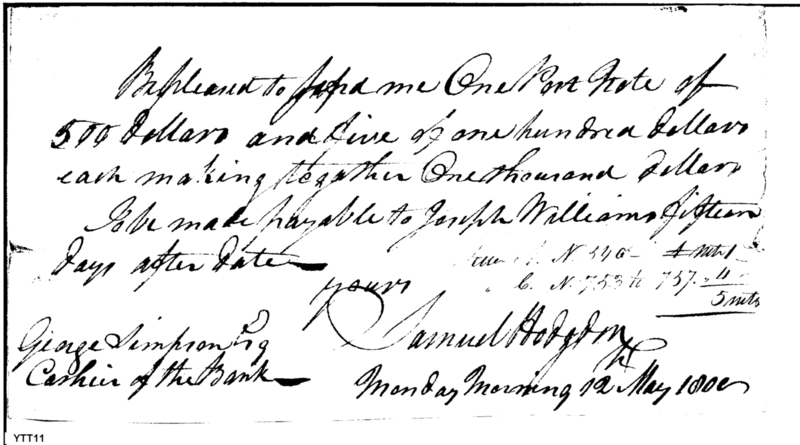 Be pleased to send me One Post Note of
500 Dollars and five of one hundred Dollars
each making together One thousand Dollars
To be made payable to Joseph Williams fifteen
days after date
N. 540
N. 753 to 757.
5 nots
yours
Samuel Hodgdon
George Simpson Esq
Cashier of the Bank
Monday Morning 12th May 1800
YTT11